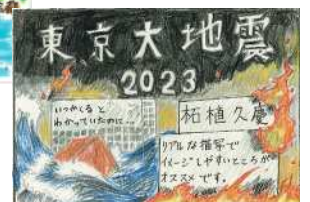 東京大地震
2023
いつかくると
わかっていたのに…
柘植久慶
リアルな描写で
イメージしやすいところが
オススメです。